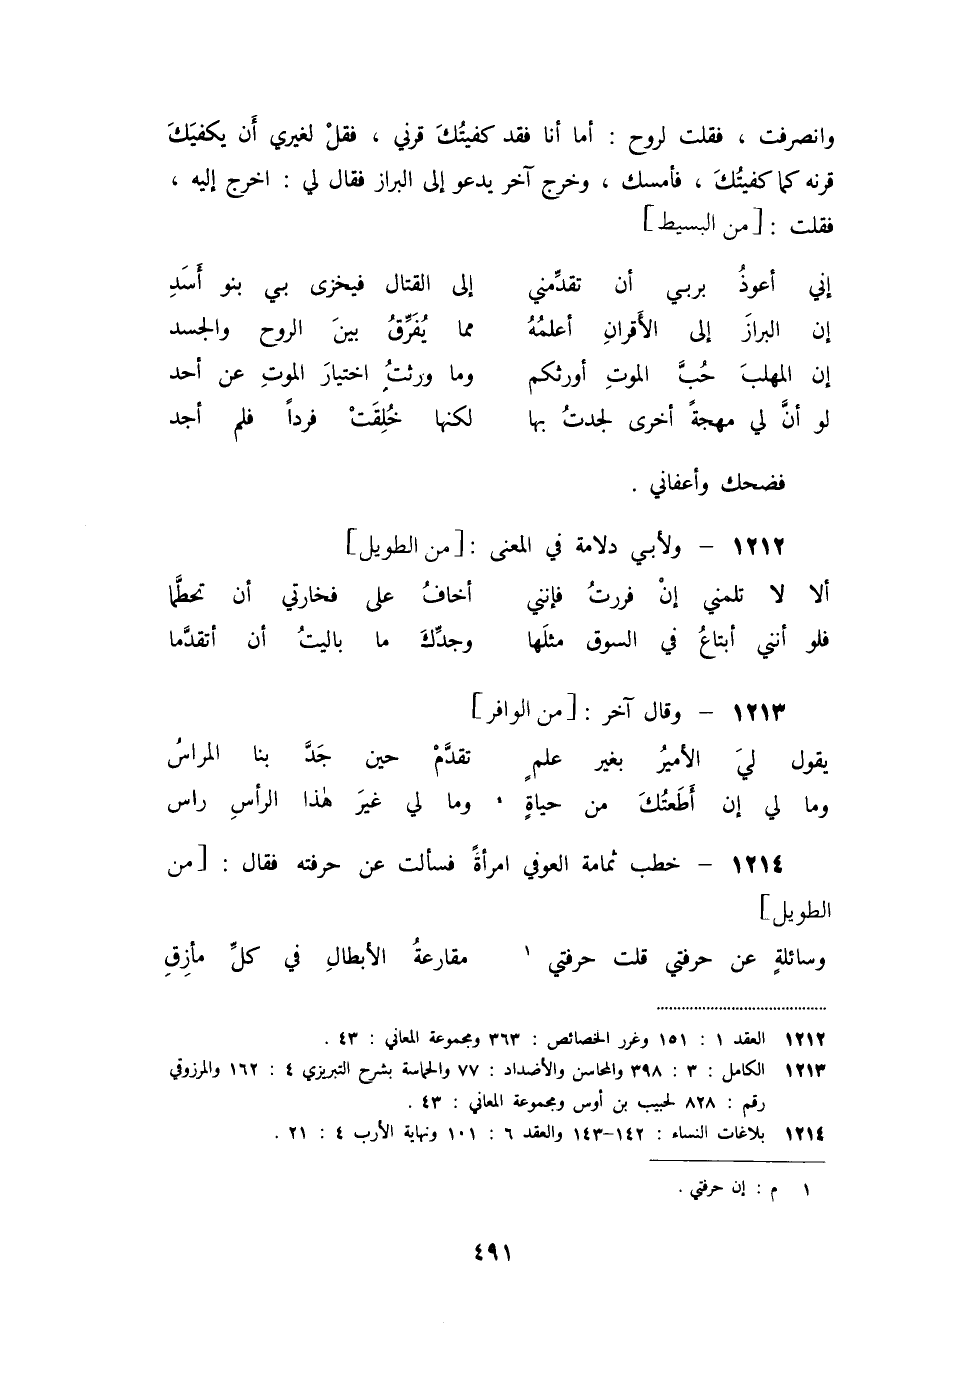 وانصرفت ، فقلت لروح : أما أنا فقد كفيتُكَ قرني ، فقلْ لغيري أَن يكفيَكَ
قرنه كما كفيتُكَ ، فأمسك ، وخرج آخر يدعو إلى البراز فقال لي : اخرج إليه ،
فقلت : [من البسيط]
إني أعوذُ بربي أن تقدِّمني إلى القتال فيخزى بي بنو أَسَدِ
إن البرازَ إلى الأَقرانِ أعلمُهُ مما يُفَرِّقُ بينَ الروح والجسد
إن المهلبَ حُبَّ الموتِ أورثكم وما ورثتُ اختيارَ الموتِ عن أحد
لو أنَّ لي مهجةً أخرى لجدتُ بها لكنها خُلِقَتْ فرداً فلم أجد
فضحك وأعفاني .
١٢١٢ – ولأبي دلامة في المعنى : [من الطويل]
ألا لا تلمني إنْ فررتُ فإنني أخافُ على فخارتي أن تحطَّما
فلو أنني أبتاعُ في السوق مثلَها وجدِّكَ ما باليتُ أن أتقدَّما
١٢١٣ – وقال آخر : [من الوافر]
يقول ليَ الأميرُ بغير علمٍ تقدَّمْ حين جَدَّ بنا المراسُ
وما لي إن أَطَعتُكَ من حياةٍ وما لي غيرَ هٰذا الرأسِ راس
١٢١٤ – خطب ثمامة العوفي امرأةً فسألت عن حرفته فقال : [من
الطويل]
وسائلةٍ عن حرفتي قلت حرفتي ١ مقارعةُ الأبطالِ في كلِّ مأزِقِ
١٢١٢ العقد ١ : ١٥١ وغرر الخصائص : ٣٦٣ ومجموعة المعاني : ٤٣ .
١٢١٣ الكامل : ٣ : ٣٩٨ والمحاسن والأضداد : ٧٧ والحماسة بشرح التبريزي ٤ : ١٦٢ والمرزوقي
رقم : ٨٢٨ لحبيب بن أوس ومجموعة المعاني : ٤٣ .
١٢١٤ بلاغات النساء : ١٤٢–١٤٣ والعقد ٦ : ١٠١ ونهاية الأرب ٤ : ٢١ .
١ م : إن حرفتي .
٤٩١